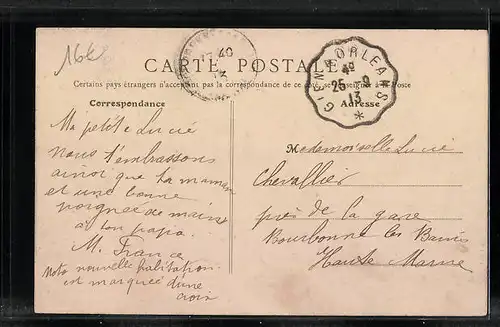 16€
CARTE POSTALE
Certains pays étrangers n'acceptent pas la correspondance de ce côté, se renseigner à la Poste
Correspondance
Adresse
GIEN A ORLEANS
4º
25 - 9
13
40
13
Ma petite Lucie
Nous t'embrassons
ainsi que ta maman
et une bonne
poignée de mains
à ton papa.
M. France
Nota nouvelle habitation
est marquée d'une
croix
Mademoiselle Lucie
Chevallier
près de la gare
Bourbonne les Bains
Haute Marne